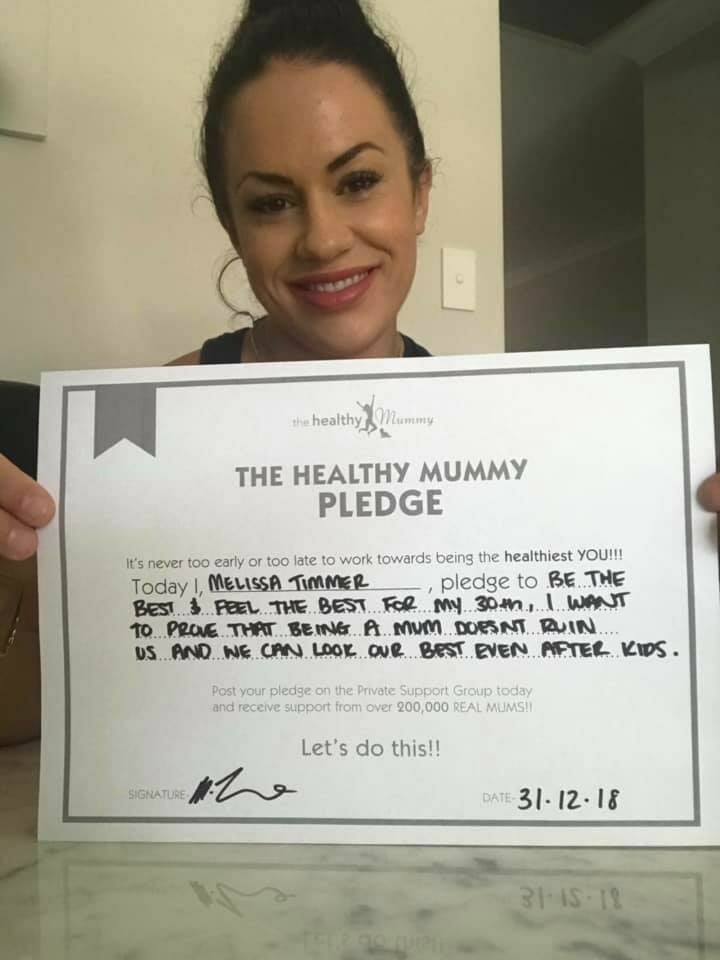 the healthy Mummy
THE HEALTHY MUMMY
PLEDGE
It's never too early or too late to work towards being the healthiest YOU!!!
Today I, MELISSA TIMMER, pledge to BE THE
BEST & FEEL THE BEST FOR MY 30th, I WANT
TO PROVE THAT BEING A MUM DOESNT RUIN
US AND WE CAN LOOK OUR BEST EVEN AFTER KIDS.
Post your pledge on the Private Support Group today
and receive support from over 200,000 REAL MUMS!!
Let's do this!!
SIGNATURE- DATE- 31.12.18